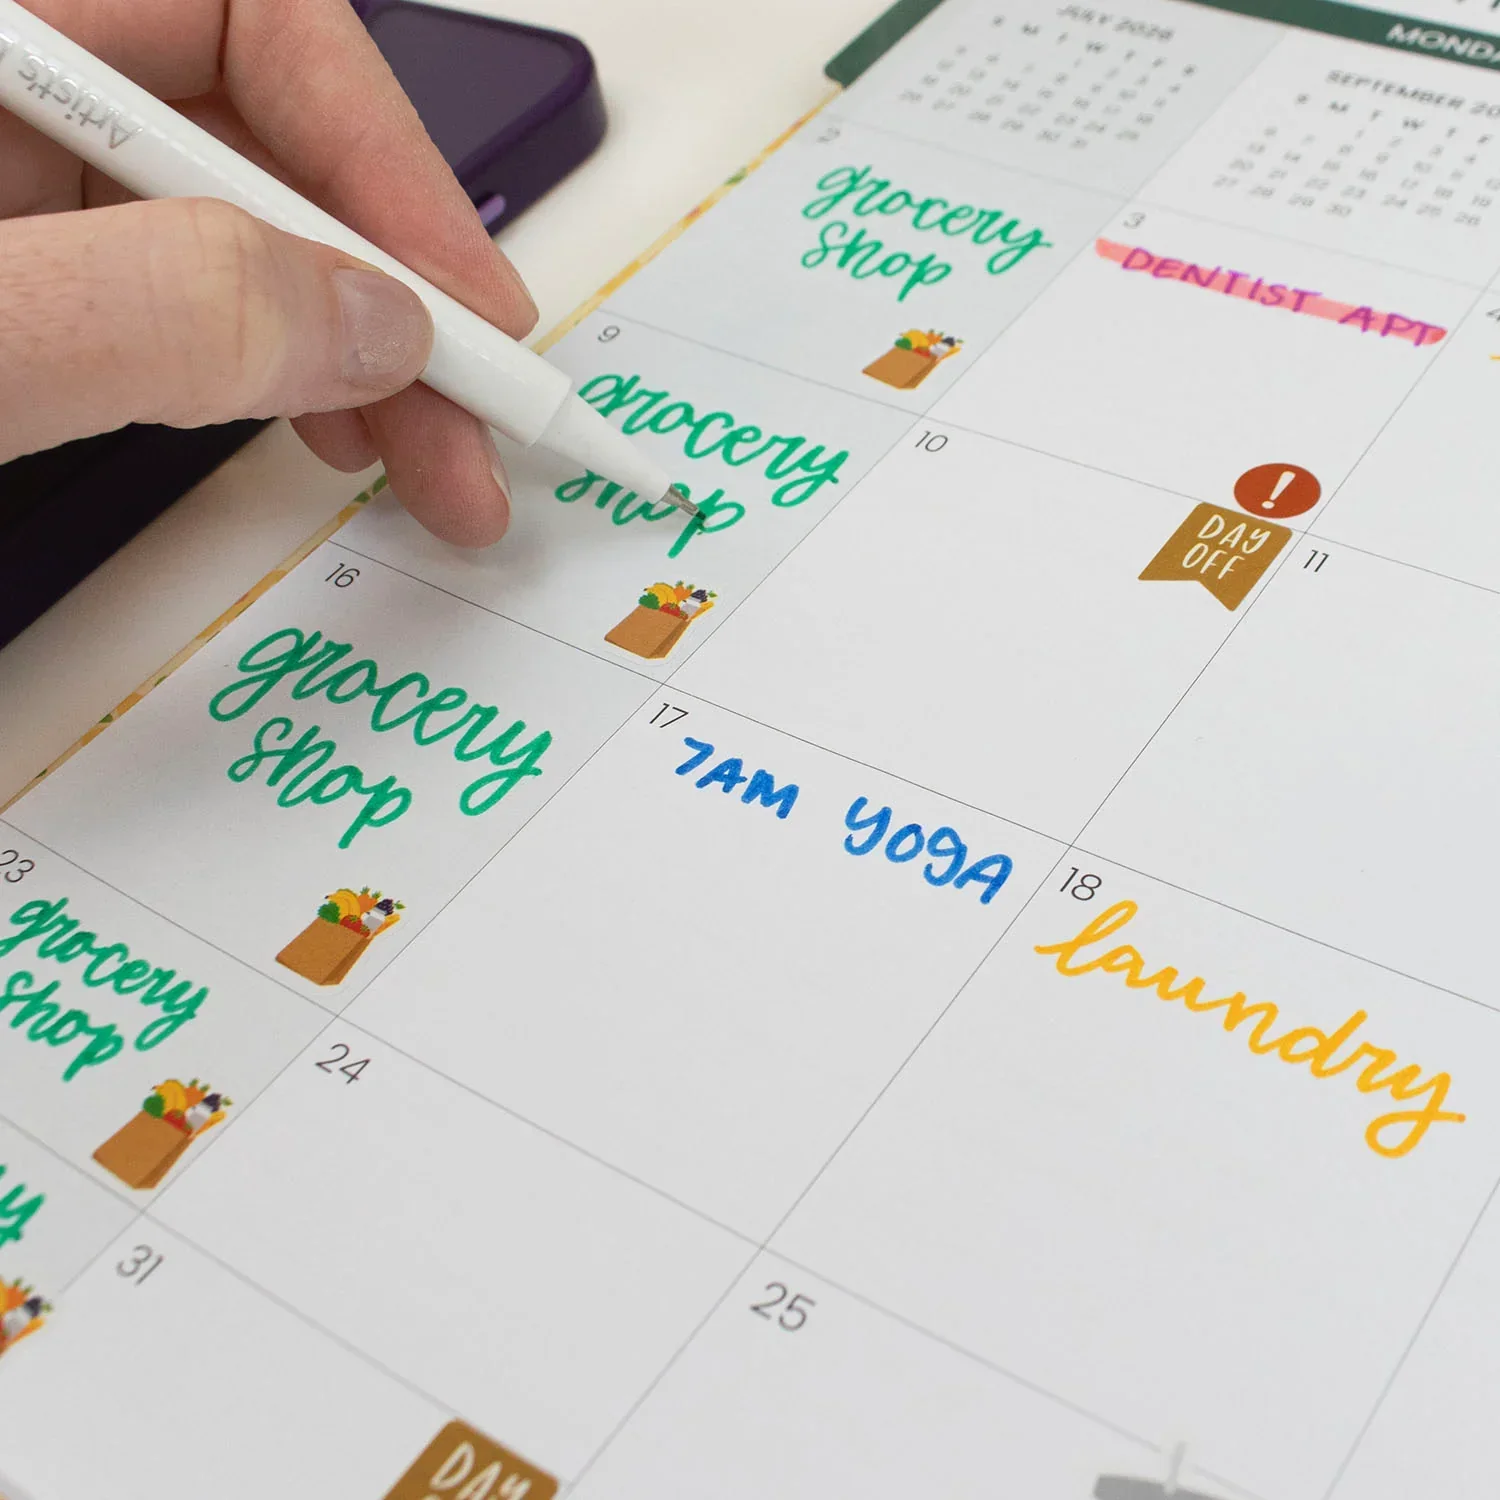 Artist's
JULY 2026
S M T W T F S
SEPTEMBER
S M T W T F
MONDA
2
grocery
shop
3
DENTIST APT
9
grocery
shop
10
DAY
OFF
11
16
grocery
shop
17
7AM YOGA
18
laundry
23
grocery
shop
24
25
y
31
DAY